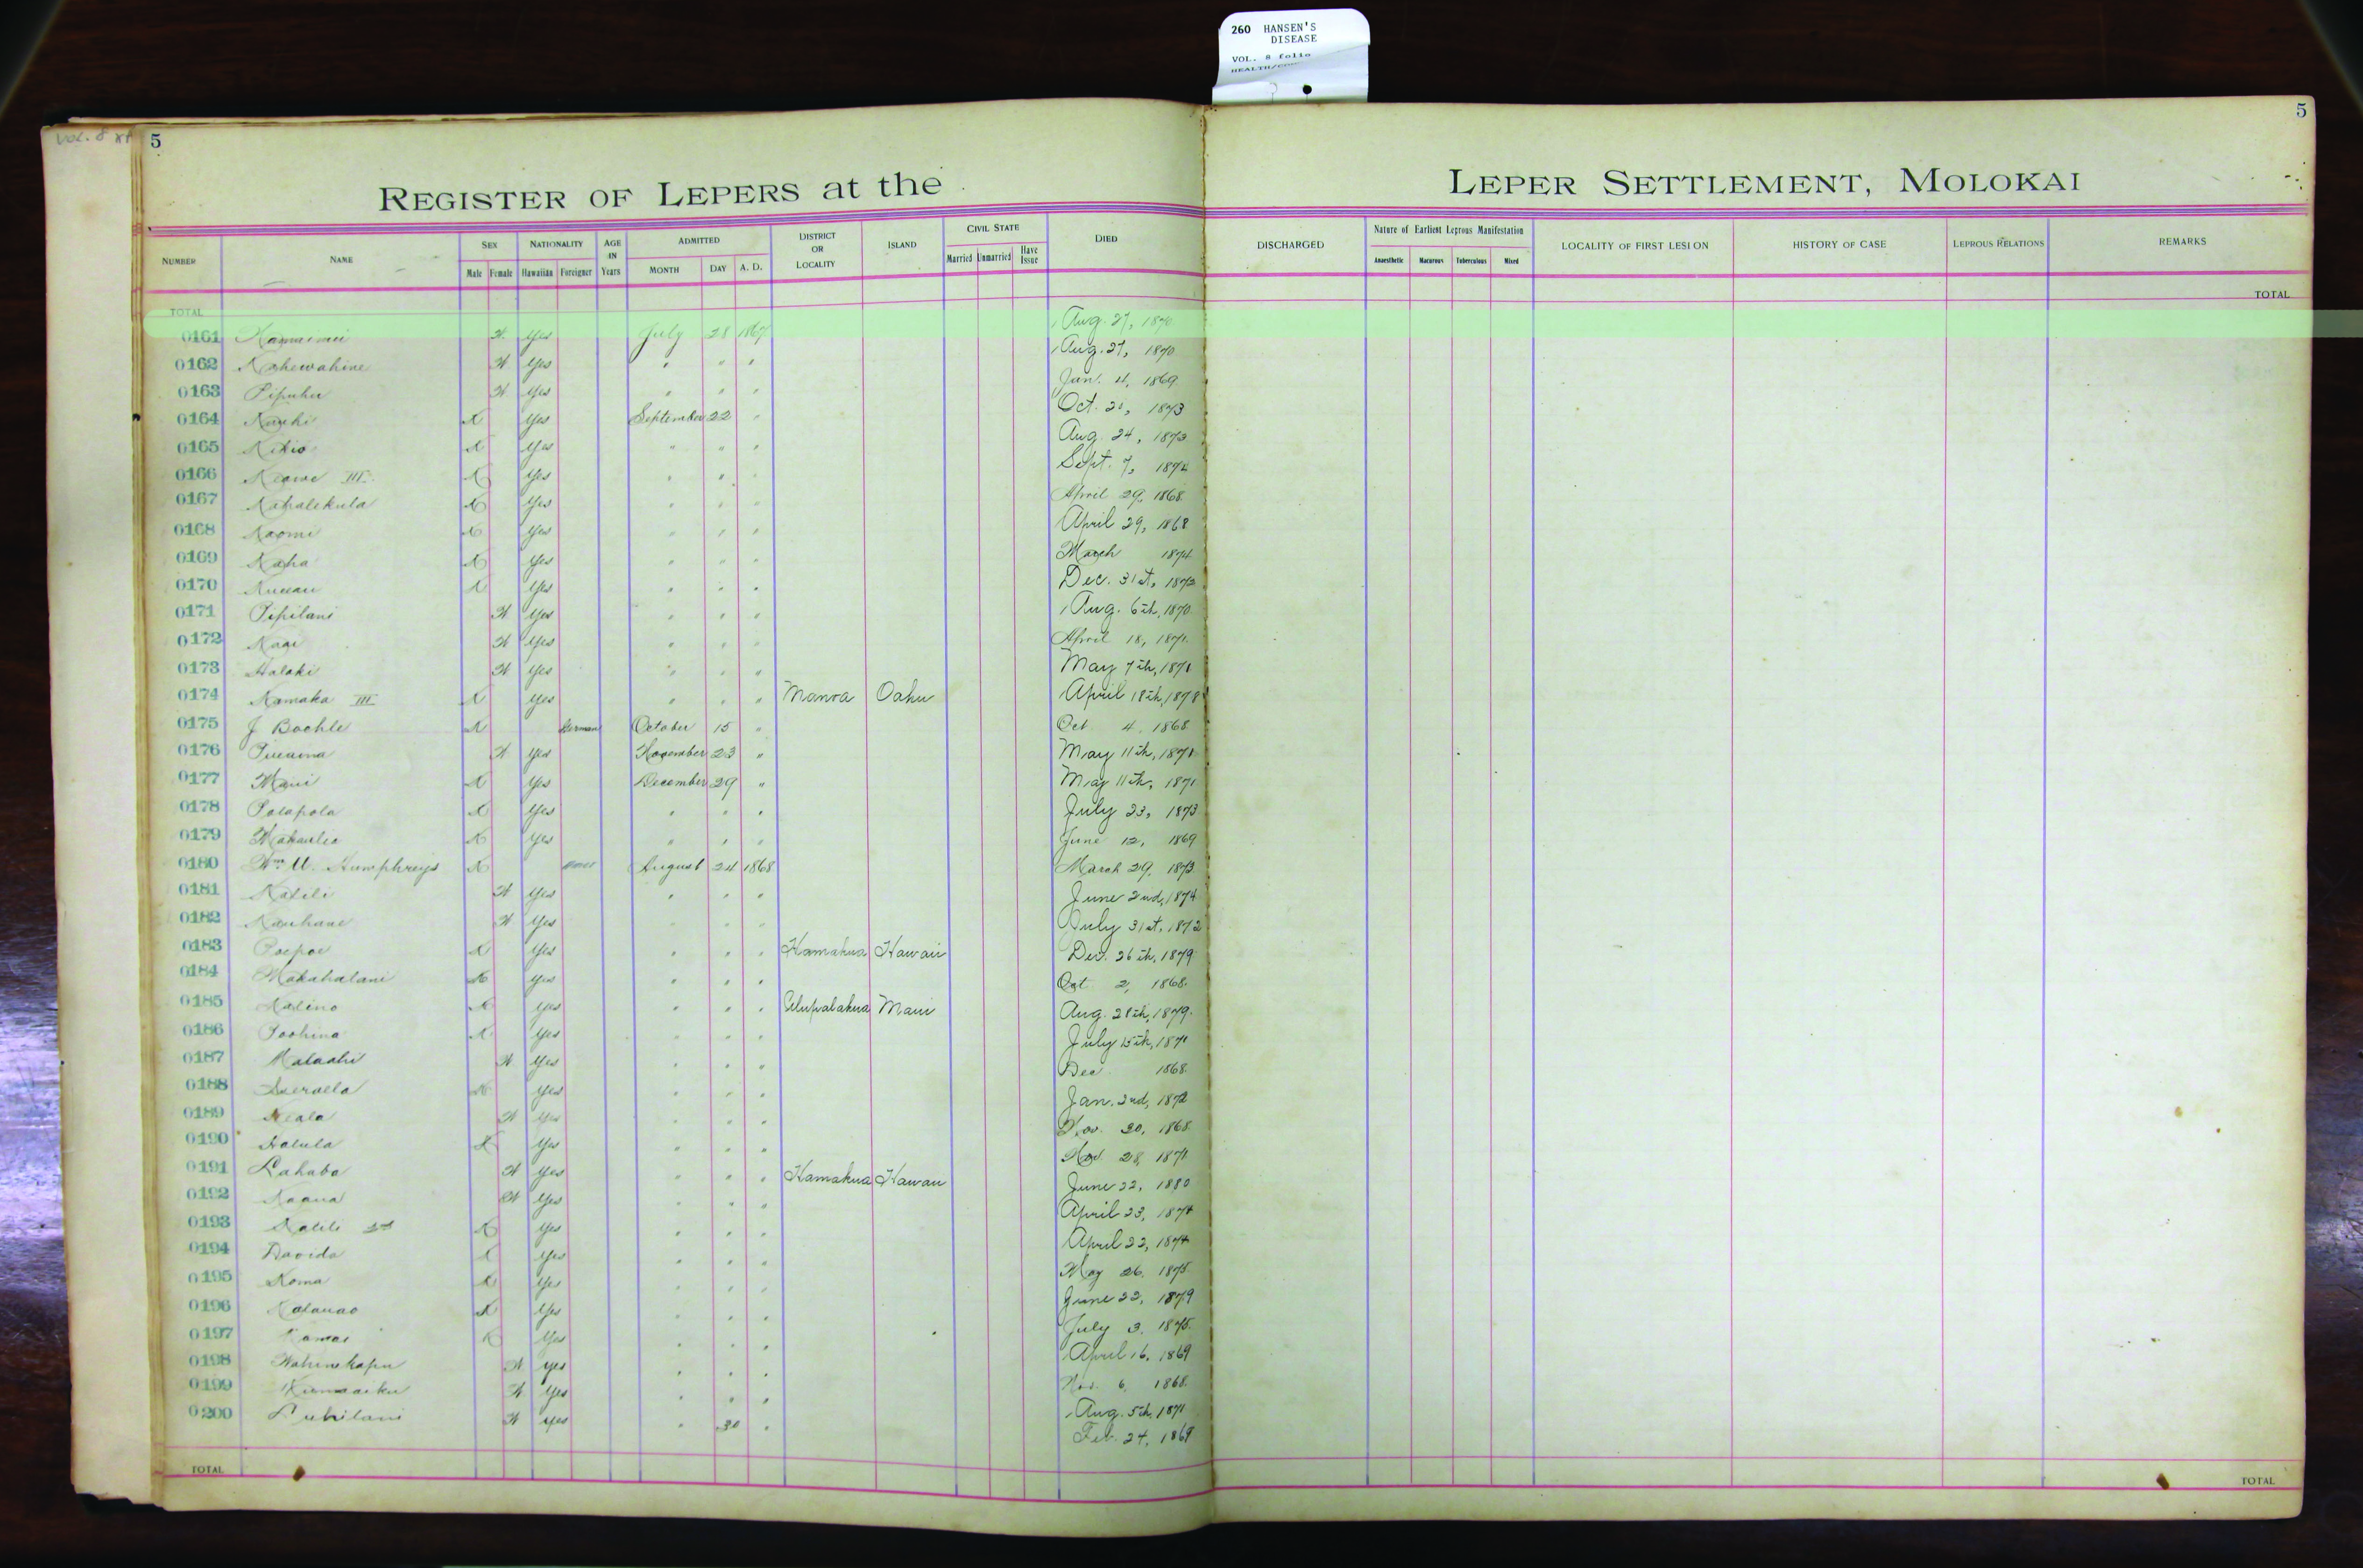 260 HANSEN'S
DISEASE
VOL. 8 folio
VOL. 8
5
5
REGISTER OF LEPERS at the LEPER SETTLEMENT, MOLOKAI
NUMBER NAME SEX Male Female NATIONALITY Hawaiian Foreigner AGE IN Years ADMITTED MONTH DAY A. D. DISTRICT OR LOCALITY ISLAND CIVIL STATE Married Unmarried Have Issue DIED DISCHARGED Nature of Earliest Leprous Manifestation Anaesthetic Macurous Tuberculous Mixed LOCALITY OF FIRST LESION HISTORY OF CASE LEPROUS RELATIONS REMARKS
TOTAL TOTAL
0161 Yes July 28 1867 Aug. 27, 1870
0162 Kahewahine Yes " " " Aug. 27, 1870
0163 Pipuhu Yes " " " Jan. 4, 1869
0164 Yes September 22 " Oct. 1873
0165 Kikio Yes " " " Aug. 24, 1873
0166 Keawe III Yes " " " Sept. 7, 1874
0167 Kahalekula Yes " " " April 29, 1868
0168 Naomi Yes " " " April 29, 1868
0169 Kaha Yes " " " March 1874
0170 Yes " " " Dec. 31st, 1873
0171 Pipilani Yes " " " Aug. 6th, 1870
0172 Kaai Yes " " " April 18, 1871
0173 Halaki Yes " " " May 7th, 1871
0174 Kamaka III Yes " " " Manoa Oahu April 18th, 1878
0175 J Boehle German October 15 " Oct 4, 1868
0176 Yes November 23 " May 11th, 1871
0177 Maui Yes December 29 " May 11th, 1871
0178 Polapola Yes " " " July 23, 1873
0179 Makaulia Yes " " " June 12, 1869
0180 Wm. Humphreys August 24 1868 March 29, 1873
0181 Kalili Yes " " " June 2nd, 1874
0182 Kauhane Yes " " " July 31st, 1872
0183 Poepoe Yes " " " Hamakua Hawaii Dec. 26th, 1879
0184 Makahalani Yes " " " Oct 2, 1868
0185 Kalino Yes " " " Ulupalakua Maui Aug. 28th, 1879
0186 Poohina Yes " " " July 15th, 1871
0187 Malaahi Yes " " " Dec 1868
0188 Yes " " " Jan. 2nd, 1872
0189 Keala Yes " " " Nov. 30, 1868
0190 Halula Yes " " " Nov. 28, 1871
0191 Lahaba Yes " " " Hamakua Hawaii June 22, 1880
0192 Kaaua Yes " " " April 23, 1874
0193 Kalili 2nd Yes " " " April 22, 1874
0194 Davida Yes " " " May 26, 1875
0195 Koma Yes " " " June 22, 1879
0196 Kalauao Yes " " " July 3, 1875
0197 Kamai Yes " " " April 16, 1869
0198 Wahinekapu Yes " " " Nov. 6, 1868
0199 Kumaaiku Yes " " " Aug. 5th, 1871
0200 Luhilani Yes " 30 " Feb. 24, 1869
TOTAL TOTAL